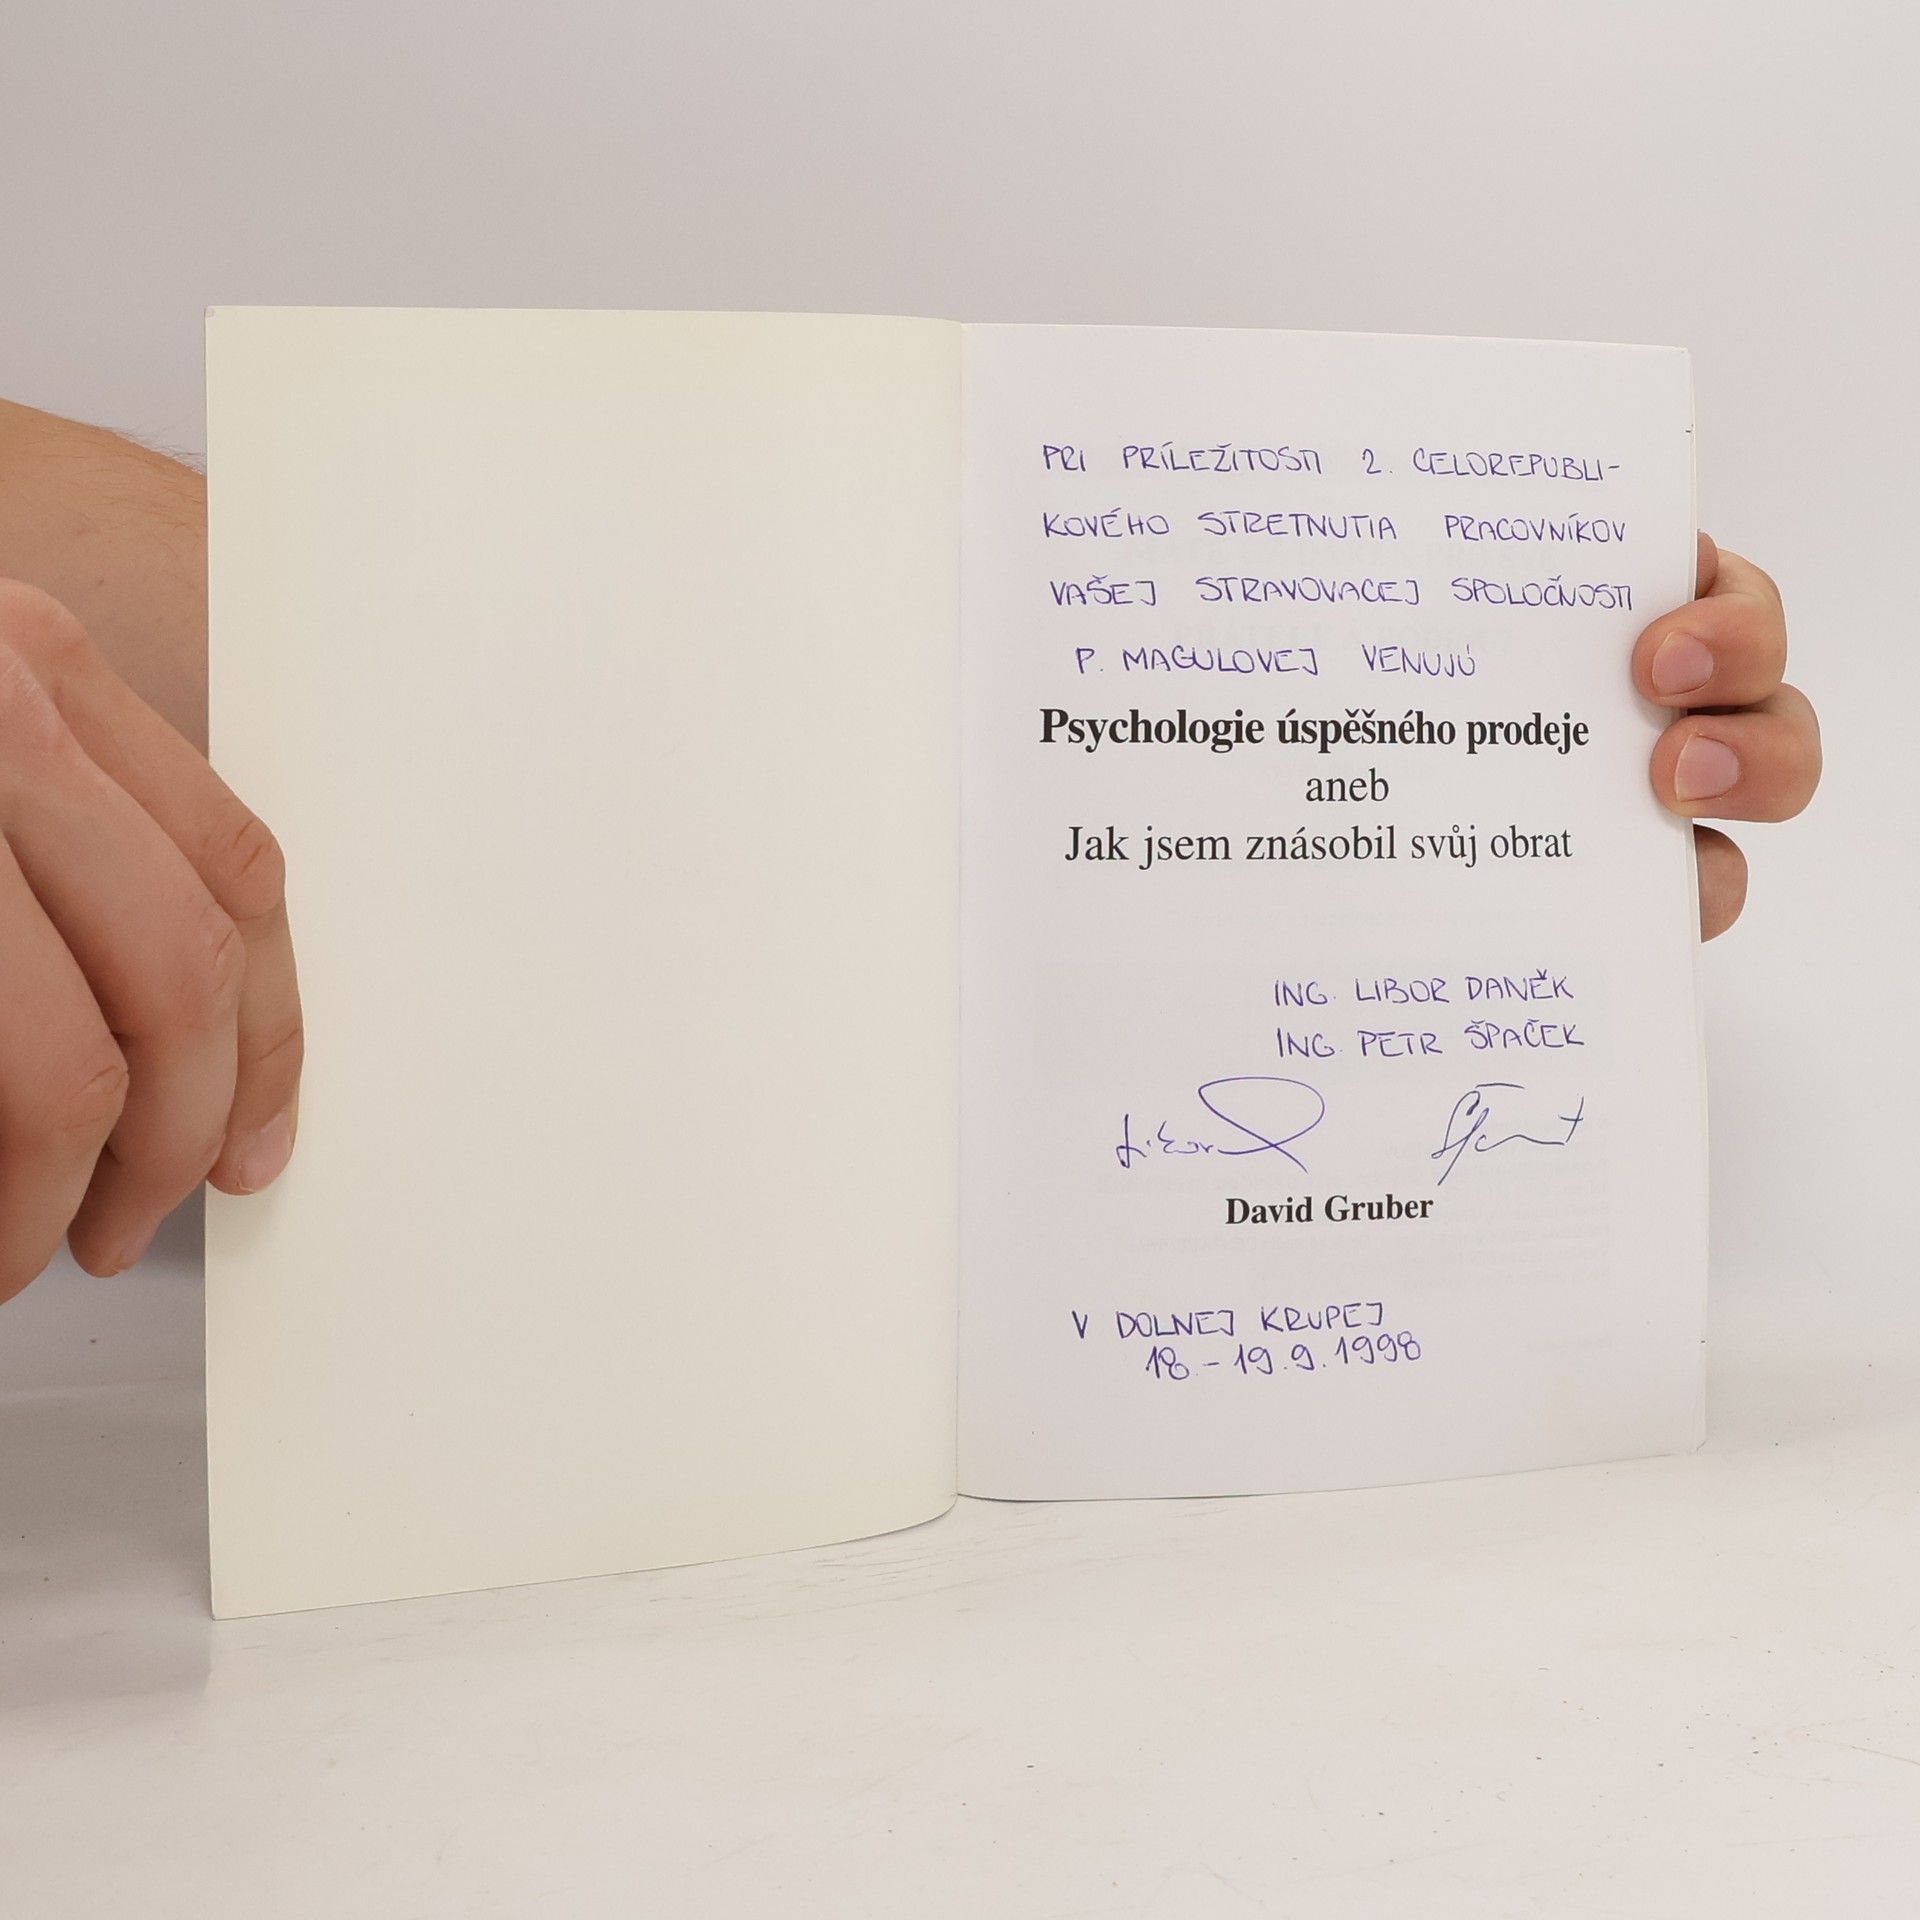 PRI PRÍLEŽITOSTI 2. CELOREPUBLI-
KOVÉHO STRETNUTIA PRACOVNÍKOV
VAŠEJ STRAVOVACEJ SPOLOČNOSTI
P. MAGULOVEJ VENUJÚ
Psychologie úspěšného prodeje
aneb
Jak jsem znásobil svůj obrat
ING. LIBOR DANĚK
ING. PETR ŠPAČEK
David Gruber
V DOLNEJ KRUPEJ
18. - 19. 9. 1998